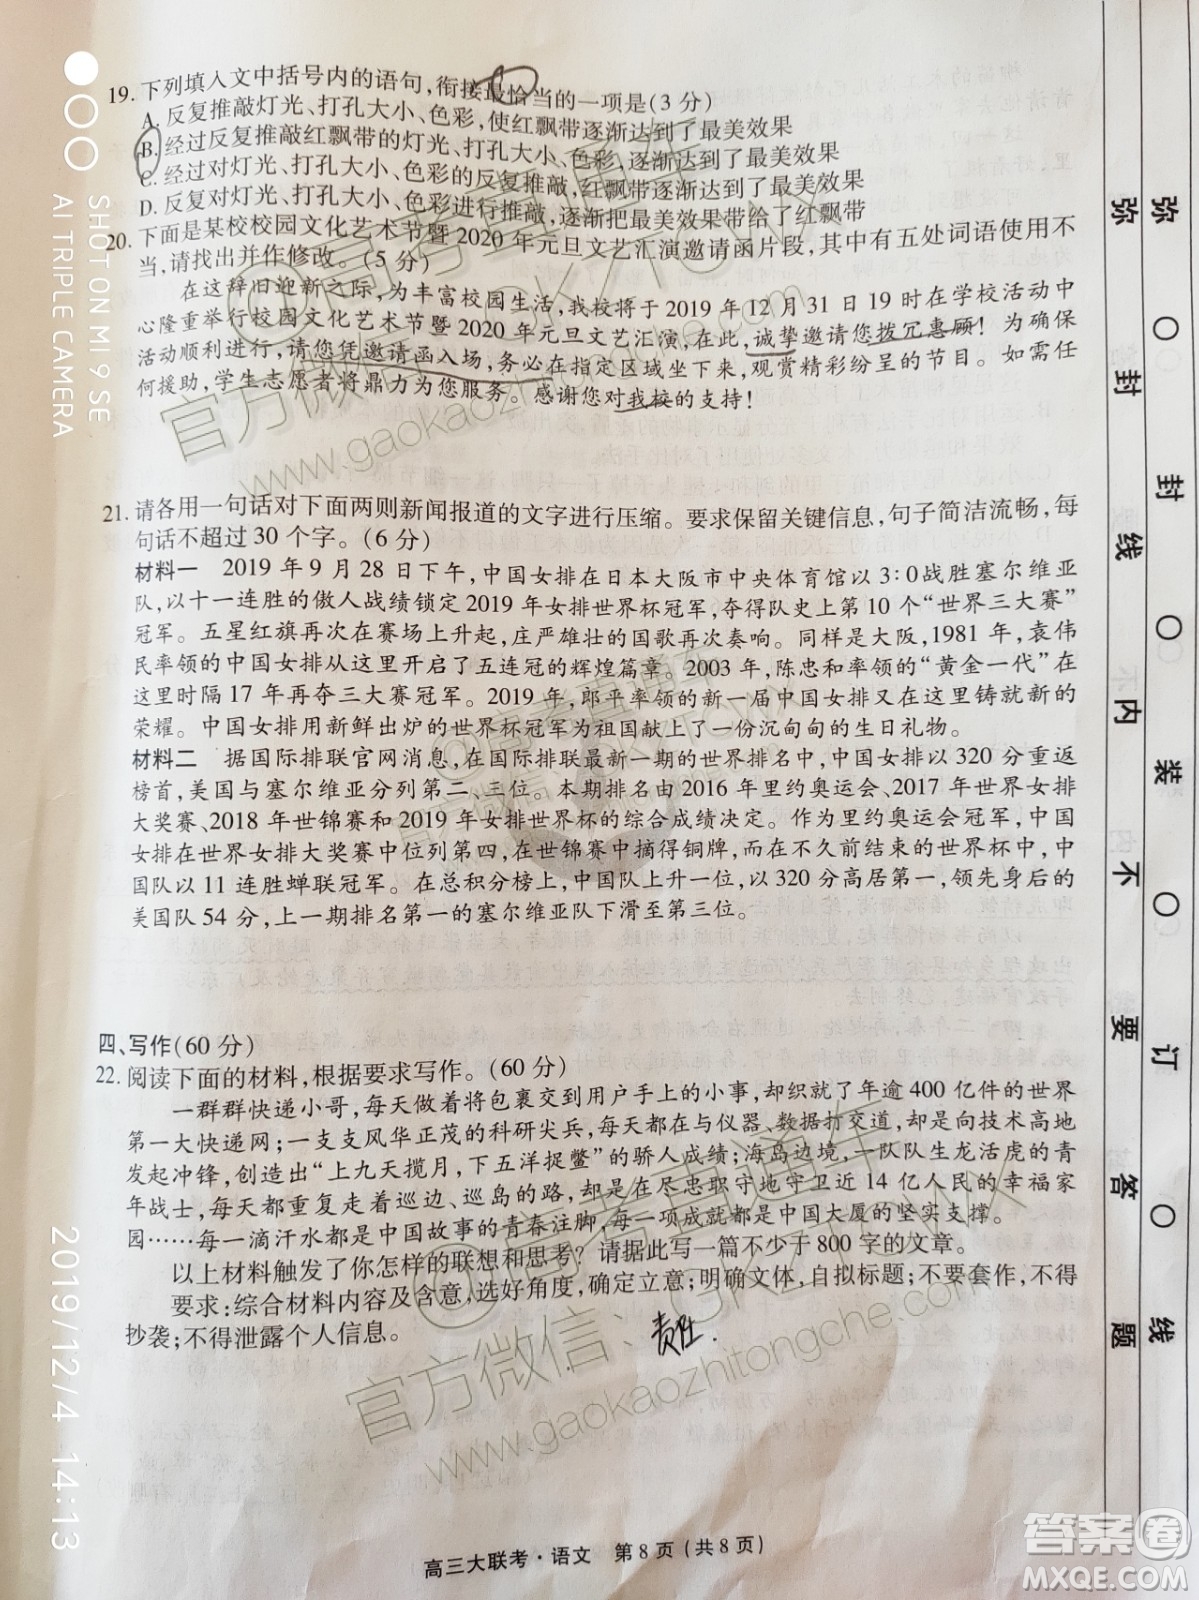 19. 下列填入文中括号内的语句,衔接最恰当的一项是(3 分)
A. 反复推敲灯光、打孔大小、色彩,使红飘带逐渐达到了最美效果
B. 经过反复推敲红飘带的灯光、打孔大小、色彩,逐渐达到了最美效果
C. 经过对灯光、打孔大小、色彩的反复推敲,红飘带逐渐达到了最美效果
D. 反复对灯光、打孔大小、色彩进行推敲,逐渐把最美效果带给了红飘带
20. 下面是某校校园文化艺术节暨 2020 年元旦文艺汇演邀请函片段,其中有五处词语使用不
当,请找出并作修改。(5 分)
在这辞旧迎新之际,为丰富校园生活,我校将于 2019 年 12 月 31 日 19 时在学校活动中
心隆重举行校园文化艺术节暨 2020 年元旦文艺汇演,在此,诚挚邀请您拨冗惠顾!为确保
活动顺利进行,请您凭邀请函入场,务必在指定区域坐下来,观赏精彩纷呈的节目。如需任
何援助,学生志愿者将鼎力为您服务。感谢您对我校的支持!
21. 请各用一句话对下面两则新闻报道的文字进行压缩。要求保留关键信息,句子简洁流畅,每
句话不超过 30 个字。(6 分)
材料一 2019 年 9 月 28 日下午,中国女排在日本大阪市中央体育馆以 3:0战胜塞尔维亚
队,以十一连胜的傲人战绩锁定 2019 年女排世界杯冠军,夺得队史上第 10 个“世界三大赛”
冠军。五星红旗再次在赛场上升起,庄严雄壮的国歌再次奏响。同样是大阪,1981 年,袁伟
民率领的中国女排从这里开启了五连冠的辉煌篇章。2003 年,陈忠和率领的“黄金一代”在
这里时隔 17 年再夺三大赛冠军。2019 年,郎平率领的新一届中国女排又在这里铸就新的
荣耀。中国女排用新鲜出炉的世界杯冠军为祖国献上了一份沉甸甸的生日礼物。
材料二 据国际排联官网消息,在国际排联最新一期的世界排名中,中国女排以 320 分重返
榜首,美国与塞尔维亚分列第二、三位。本期排名由 2016 年里约奥运会、2017 年世界女排
大奖赛、2018 年世锦赛和 2019 年女排世界杯的综合成绩决定。作为里约奥运会冠军,中国
女排在世界女排大奖赛中位列第四,在世锦赛中摘得铜牌,而在不久前结束的世界杯中,中
国队以 11 连胜蝉联冠军。在总积分榜上,中国队上升一位,以 320 分高居第一,领先身后的
美国队 54 分,上一期排名第一的塞尔维亚队下滑至第三位。
四、写作(60 分)
22. 阅读下面的材料,根据要求写作。(60 分)
一群群快递小哥,每天做着将包裹交到用户手上的小事,却织就了年逾 400 亿件的世界
第一大快递网;一支支风华正茂的科研尖兵,每天都在与仪器、数据打交道,却向技术高地
发起冲锋,创造出“上九天揽月,下五洋捉鳖”的骄人成绩;海岛边境,一队队生龙活虎的青
年战士,每天都重复走着巡边、巡岛的路,却在尽忠职守地守卫近 14 亿人民的幸福家
园……每一滴汗水都是中国故事的青春注脚,每一项成就都是中国大厦的坚实支撑。
以上材料触发了你怎样的联想和思考?请据此写一篇不少于 800 字的文章。
要求:综合材料内容及含意,选好角度,确定立意;明确文体,自拟标题;不要套作,不得
抄袭;不得泄露个人信息。
责胜.
高三大联考·语文 第 8 页(共 8 页)
弥 封 线 内 不 要 答 题
弥 封 装 订 线
SHOT ON MI 9 SE
AI TRIPLE CAMERA
2019/12/4 14:13
@高考直通车
官方微信:GKZTWX
www.gaokaozhitongche.com
答案圈
MXQE.COM